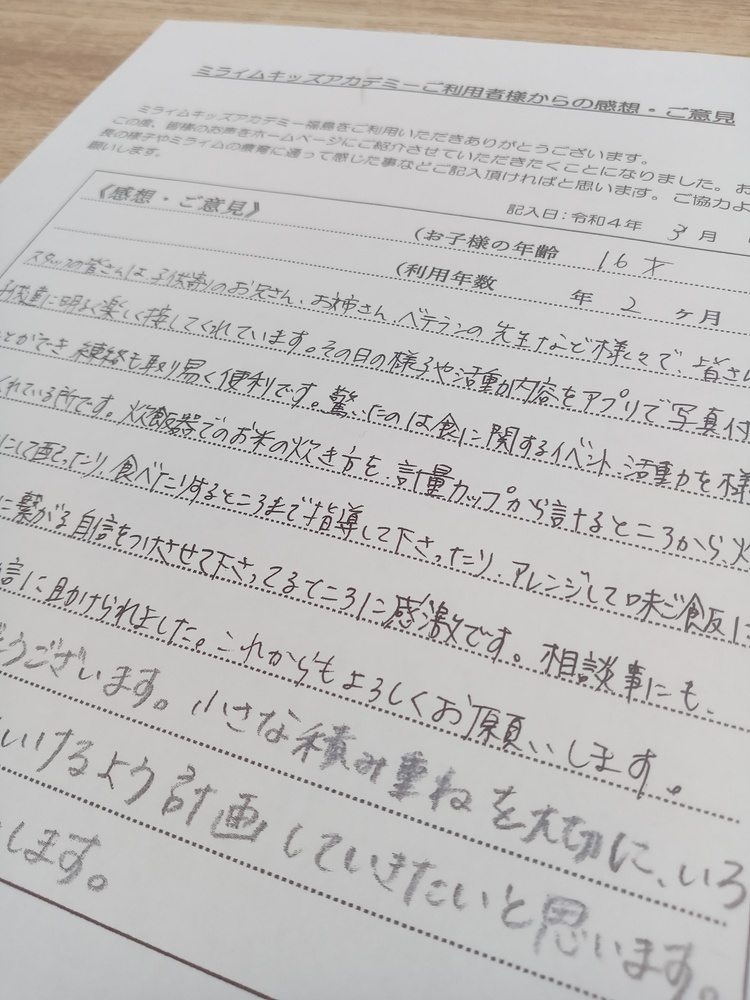 ミライムキッズアカデミーご利用者様からの感想・ご意見
ミライムキッズアカデミー福島をご利用いただきありがとうございます。
この度、皆様のお声をホームページにご紹介させていただきたくことになりました。お
長の様子やミライムの療育に通って感じた事などご記入頂ければと思います。ご協力よ
願いします。
記入日：令和4年 3月
《感想・ご意見》
(お子様の年齢 16才
(利用年数 年 2 ヶ月
スタッフの皆さんは、子供寄りのお兄さん、お姉さん、ベテランの先生など様々で、皆さ
子供達に明るく楽しく接してくれています。その日の様子や活動内容をアプリで写真付
とができ連絡も取り易く便利です。驚いたのは食に関するイベント、活動力を様
くれている所です。炊飯器でのお米の炊き方を、計量カップから計るところから、炊
にして配ったり、食べたりするところまで指導して下さったり、アレンジして味ご飯に
に繋がる自信をつけさせて下さってるところに感激です。相談事にも、
言に助けられました。これからもよろしくお願いします。
うございます。小さな積み重ねを大切に、いろ
いけるよう計画していきたいと思います。
します。